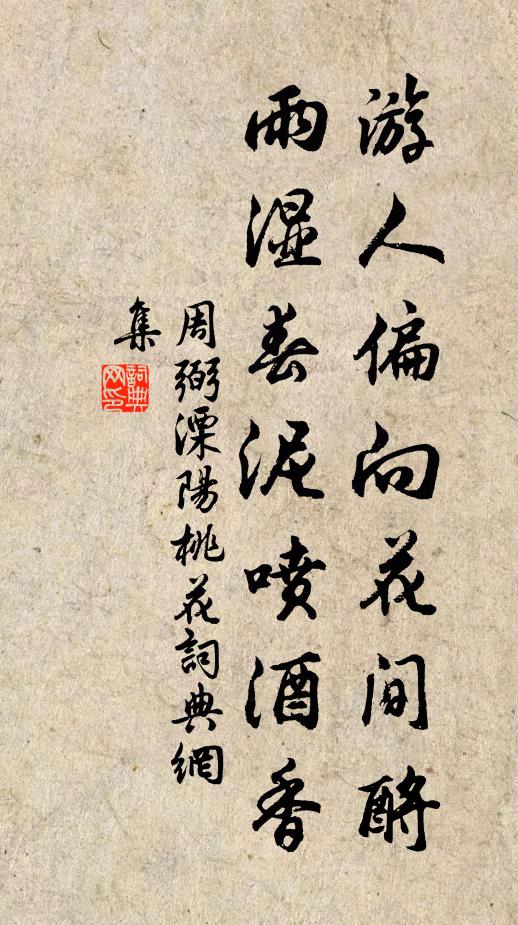 游人偏向花间酹
雨湿春泥喷酒香
周弼溧陽桃花詞典網
集
詞典
网印